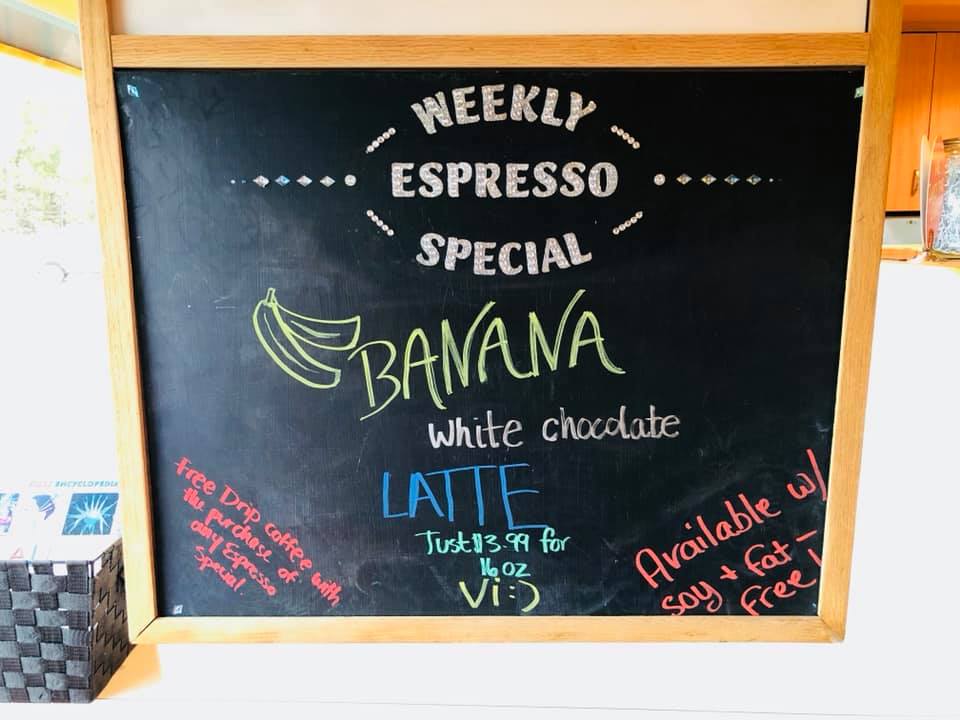 WEEKLY
ESPRESSO
SPECIAL
BANANA
white chocolate
LATTE
Just $3.99 for
16 oz
Vi :)
Free Drip coffee with
the purchase of
any Espresso
Special.
Available w/
soy + Fat-
Free!
ENCYCLOPEDIA